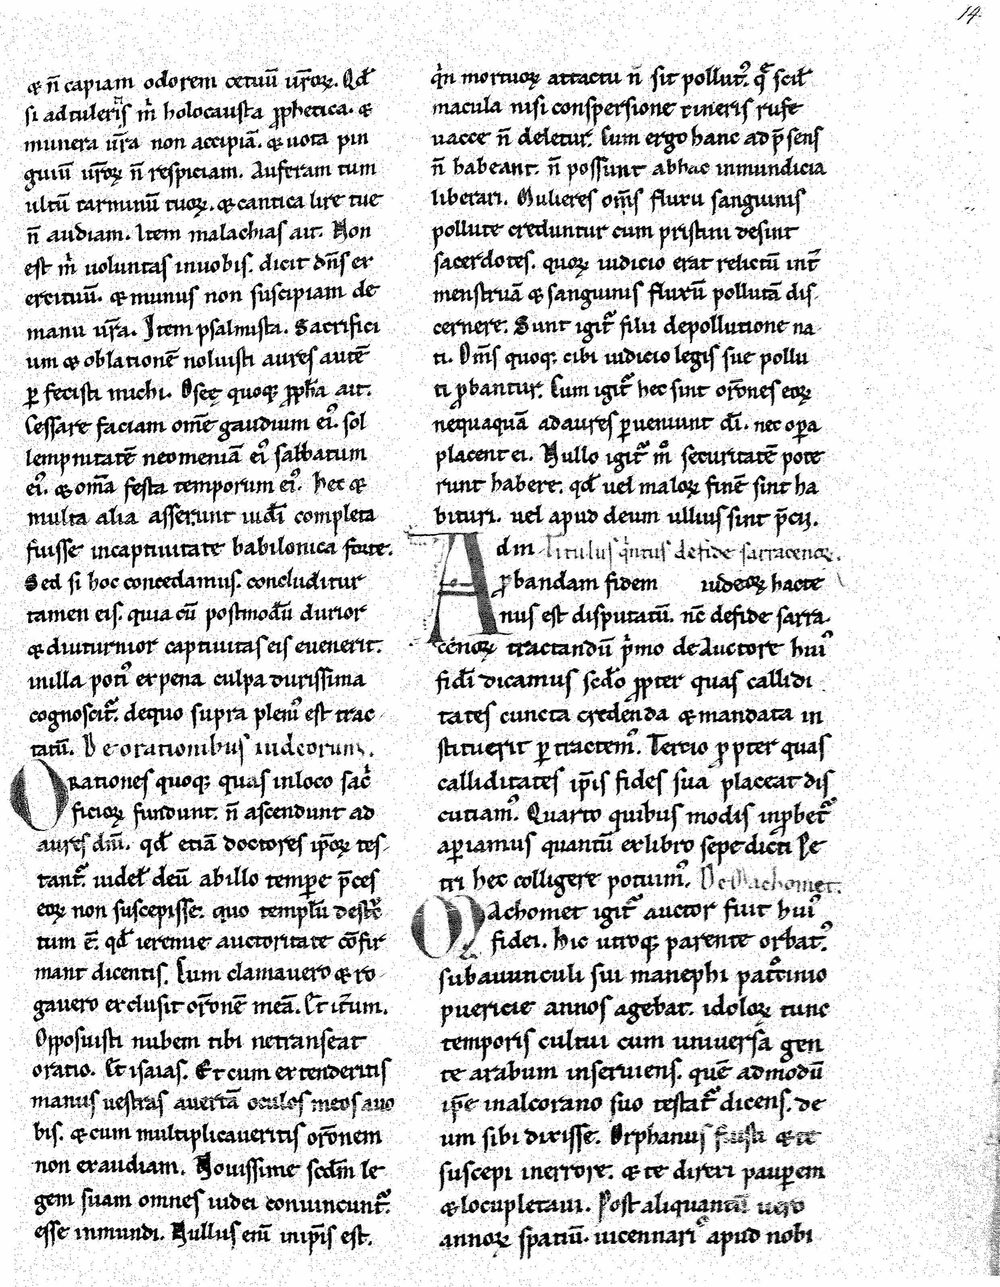 14.
& n̄ capiam odorem cetuū ur̄oꝝ. Qd̄
si adtuleritis m̄ holocausta ꝓphetica. &
munera ur̄a non accipiā. & uota pin
guiū ur̄oꝝ n̄ respiciam. Auferam tum
ultū carminū tuoꝝ. & cantica lire tue
n̄ audiam. Item malachias ait. Non
est m̄ uoluntas inuobis. dicit dn̄s ex
ercituū. & munus non suscipiam de
manu ur̄a. Item psalmista. Sacrifici
um & oblationē noluisti aures autē
ꝑfecisti michi. Oseę quoqꝫ ꝓph̄a ait.
Cessare faciam omē gaudium ei᾿. sol
lempnitatē neomeniā ei᾿ sabbatum
ei᾿. & om̄a festa temporum ei᾿. Hec &
multa alia asserunt iudi̅ completa
fuisse incaptiuitate babilonica forte.
Sed si hoc concedamus. concluditur
tamen eis. quia cū postmodū durior
& diuturnior captiuitas eis euenerit.
inilla poti᾿ ex pena culpa durissima
cognoscit᷑. dequo supra pleni᾿ est trac
tatū. De orationibus iudeorum.
Orationes quoqꝫ quas inloco sac̄
ficioꝝ fundunt. n̄ ascendunt ad
aures dn̄i. qd̄ etiā doctores ip̄oꝝ tes
tant᷑. uidel̄ deū abillo tempore p̄ces
eoꝝ non suscepisse. quo templū destc̄
tum ē. qd̄ ieremie auctoritate cōfir
mant dicentis. Cum clamauero & ro
gauero exclusit or̄onē meā. Et it̄um.
Opposuisti nubem tibi netranseat
oratio. Et isaias. Et cum extenderitis
manus uestras auertā oculos meos auo
bis. & cum multiplicaueritis or̄onem
non exaudiam. Nouissime scd̄m le
gem suam omnes iudei conuincunt᷑
esse inmundi. Nullus enī inip̄is est.
q̄n mortuoꝝ attactu n̄ sit pollut᾿. q̄ scil̄
macula nisi conspersione cineris rufe
uacce n̄ deletur. Cum ergo hanc adp̄sens
n̄ habeant. n̄ possunt abhac inmundicia
liberari. Mulieres om̄s fluxu sanguinis
pollute creduntur cum pristini desint
sacerdotes. quoꝝ iudicio erat relictū int̄
menstruā & sanguinis fluxū pollutā dis
cernere. Sunt igit᷑ filii depollutione na
ti. Om̄s quoqꝫ cibi iudicio legis sue pollu
ti ꝓbantur. Cum igit᷑ hec sint or̄ones eoꝝ
nequaquā adaures ꝑueniunt di̅. nec oꝑa
placent ei. Nullo igit᷑ m̊ securitatē pote
runt habere. qd̄ uel maloꝝ finē sint ha
bituri. uel apud deum ullius sint p̄cii.
Titulus q̄ntus defide sarracenoꝝ.
Adin
ꝓbandam fidem iudeoꝝ hacte
nus est disputatū. nc̄ defide sarra
cenoꝝ tractandū p̄mo deAuctore hui᾿
fidi̅ dicamus scdo̅ ꝓpter quas callidi
tates cuncta credenda & mandata in
stituerit ꝑtractem᾿. Tercio ꝓpter quas
calliditates ip̄is fides sua placeat dis
cutiam᾿. Quarto quibus modis inp̄bet᷑
aꝑiamus quantū exlibro sepedicti Pe
tri hec colligere potuim᾿. De Machomet.
Machomet igit᷑ auctor fuit hui᾿
fidei. Hic utroqꝫ parente orbat᾿.
subauunculi sui manephi pat̊cinio
puericie annos agebat. idoloꝝ tunc
temporis cultui cum uniuersa gen
te arabum inseruiens. quē admodū
ip̄e inalcorano suo testat᷑ dicens. de
um sibi dixisse. Orphanus fuisti & te
suscepi inerrore. & te direxi pauꝑem
& locupletaui. Post aliquantū uero
annoꝝ spatiū. uicennari᾿ apud nobi